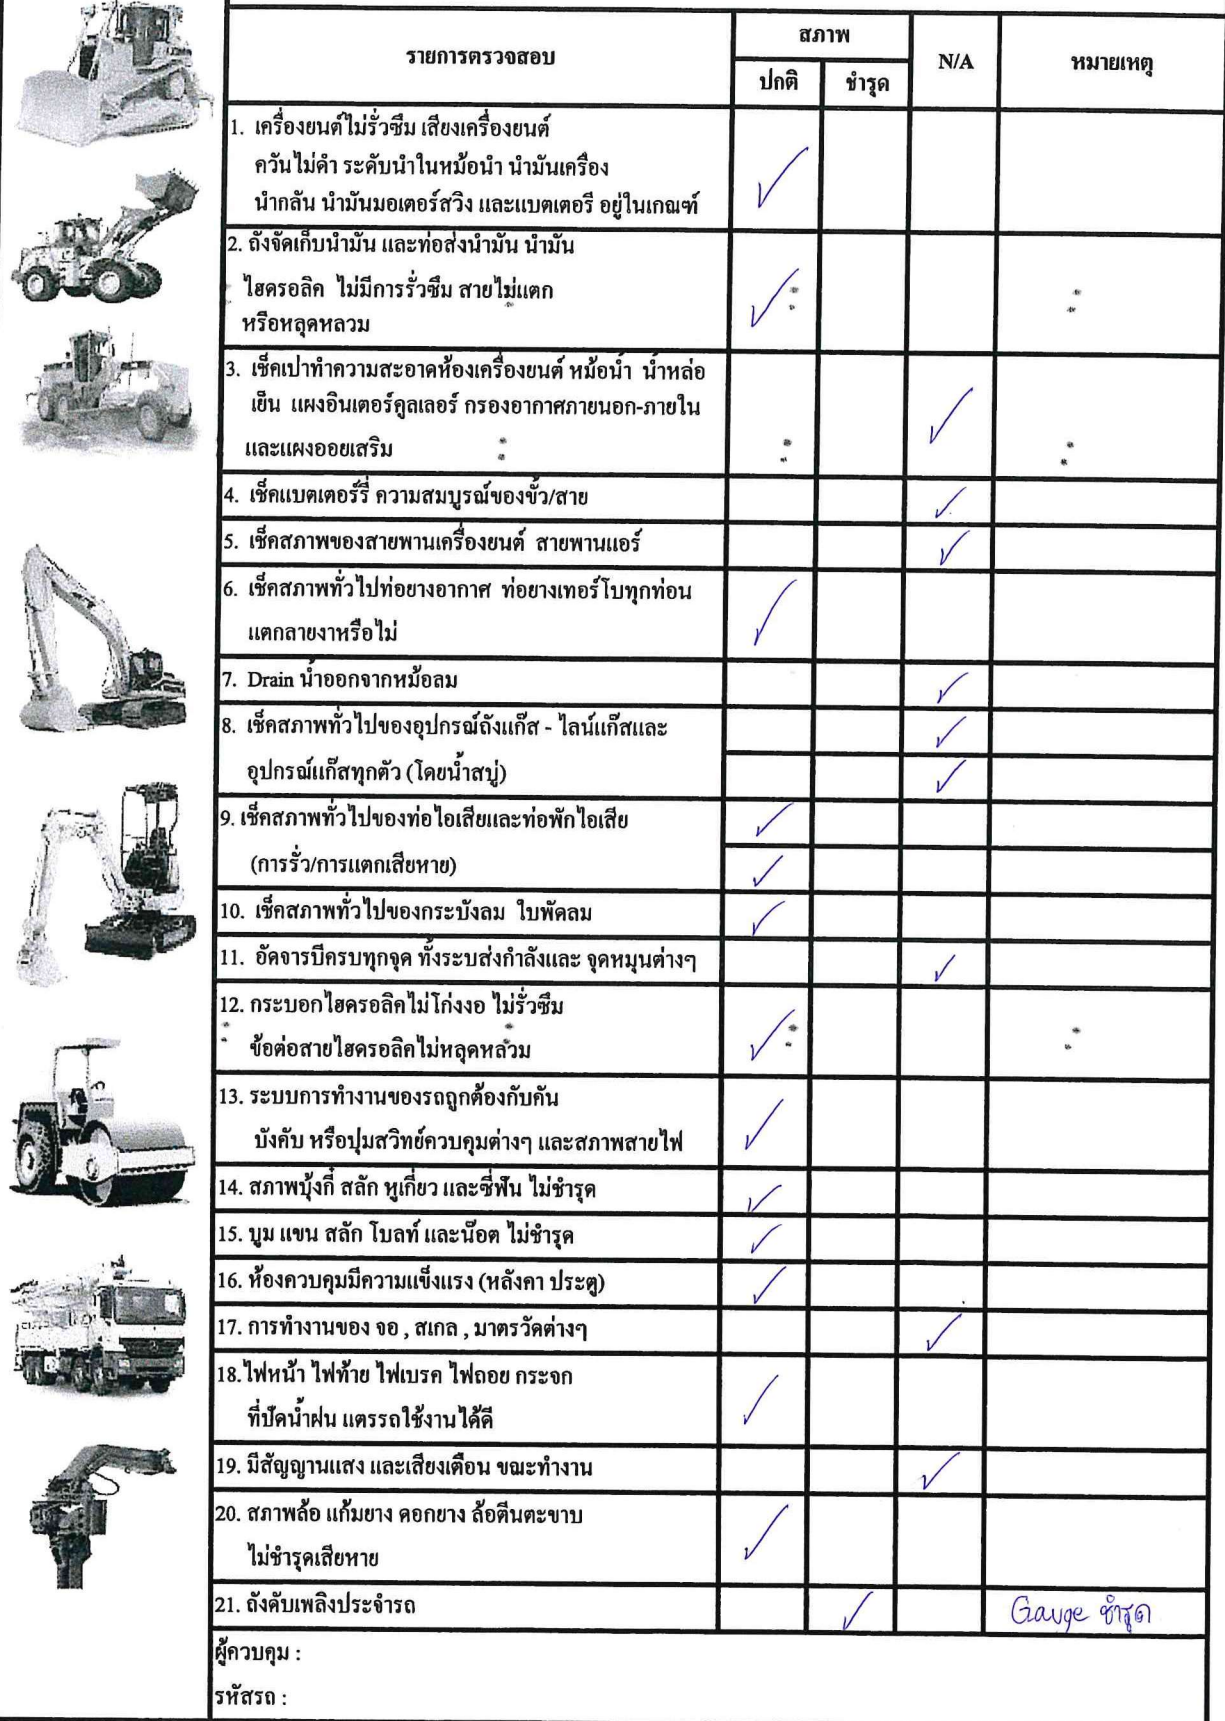 รายการตรวจสอบ
สภาพ
N/A
หมายเหตุ
ปกติ
ชำรุด
1. เครื่องยนต์ไม่รั่วซึม เสียงเครื่องยนต์
ควันไม่ดำ ระดับนำในหม้อนำ นำมันเครื่อง
นำกลัน นำมันมอเตอร์สวิง และแบตเตอรี อยู่ในเกณฑ์
✓
2. ถังจัดเก็บนำมัน และท่อส่งนำมัน นำมัน
ไฮครอลิค ไม่มีการรั่วซึม สายไม่แตก
หรือหลุดหลวม
✓
3. เช็คเปาทำความสะอาดห้องเครื่องยนต์ หม้อน้ำ น้ำหล่อ
เย็น แผงอินเตอร์คูลเลอร์ กรองอากาศภายนอก-ภายใน
และแผงออยเสริม
✓
4. เช็คแบตเตอร์รี่ ความสมบูรณ์ของขั้ว/สาย ✓
5. เช็คสภาพของสายพานเครื่องยนต์ สายพานแอร์ ✓
6. เช็คสภาพทั่วไปท่อยางอากาศ ท่อยางเทอร์โบทุกท่อน
แตกลายงาหรือไม่
✓
7. Drain น้ำออกจากหม้อลม ✓
8. เช็คสภาพทั่วไปของอุปกรณ์ถังแก๊ส - ไลน์แก๊สและ ✓
อุปกรณ์แก๊สทุกตัว (โดยน้ำสบู่) ✓
9. เช็คสภาพทั่วไปของท่อไอเสียและท่อพักไอเสีย ✓
(การรั่ว/การแตกเสียหาย) ✓
10. เช็คสภาพทั่วไปของกระบังลม ใบพัดลม ✓
11. อัดจารบีครบทุกจุด ทั้งระบส่งกำลังและ จุดหมุนต่างๆ ✓
12. กระบอกไฮครอลิคไม่โก่งงอ ไม่รั่วซึม
ข้อต่อสายไฮครอลิคไม่หลุดหลวม
✓
13. ระบบการทำงานของรถถูกต้องกับคัน
บังคับ หรือปุ่มสวิทย์ควบคุมต่างๆ และสภาพสายไฟ
✓
14. สภาพบุ้งกี๋ สลัก หูเกี่ยว และซี่ฟัน ไม่ชำรุด ✓
15. บูม แขน สลัก โบลท์ และน๊อต ไม่ชำรุด ✓
16. ห้องควบคุมมีความแข็งแรง (หลังคา ประตู) ✓
17. การทำงานของ จอ , สเกล , มาตรวัดต่างๆ ✓
18. ไฟหน้า ไฟท้าย ไฟเบรค ไฟถอย กระจก
ที่ปัดน้ำฝน แตรรถใช้งานได้ดี
✓
19. มีสัญญานแสง และเสียงเตือน ขณะทำงาน ✓
20. สภาพล้อ แก้มยาง ดอกยาง ล้อตีนตะขาบ
ไม่ชำรุดเสียหาย
✓
21. ถังดับเพลิงประจำรถ ✓ Gauge ชำรุด
ผู้ควบคุม :
รหัสรถ :